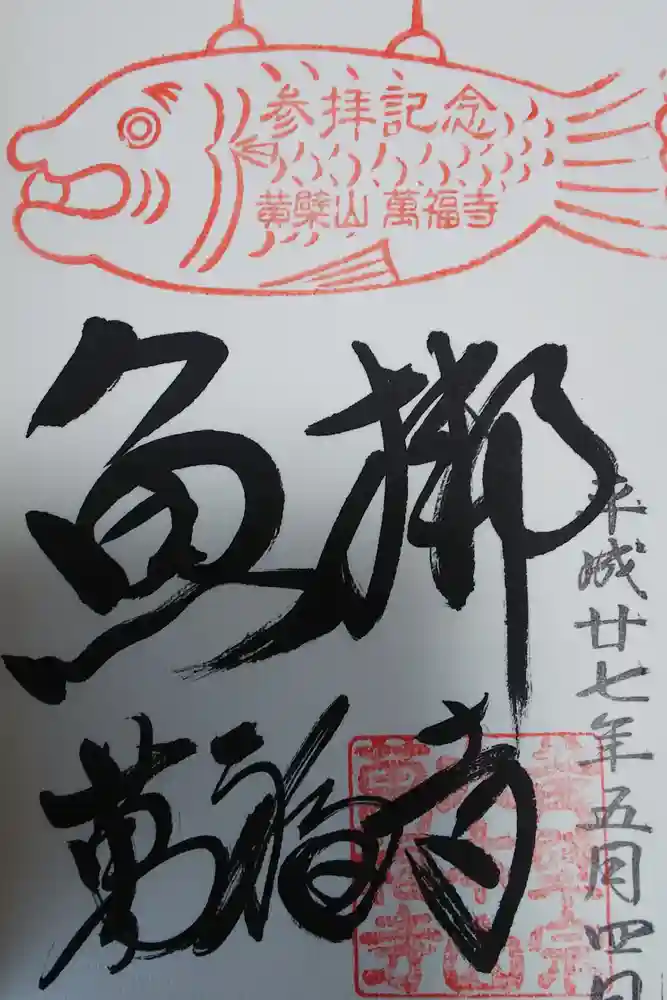 参拝記念
黄檗山 萬福寺
魚梆
萬福寺
平成廿七年五月四日
黄檗宗
大本山
萬福寺